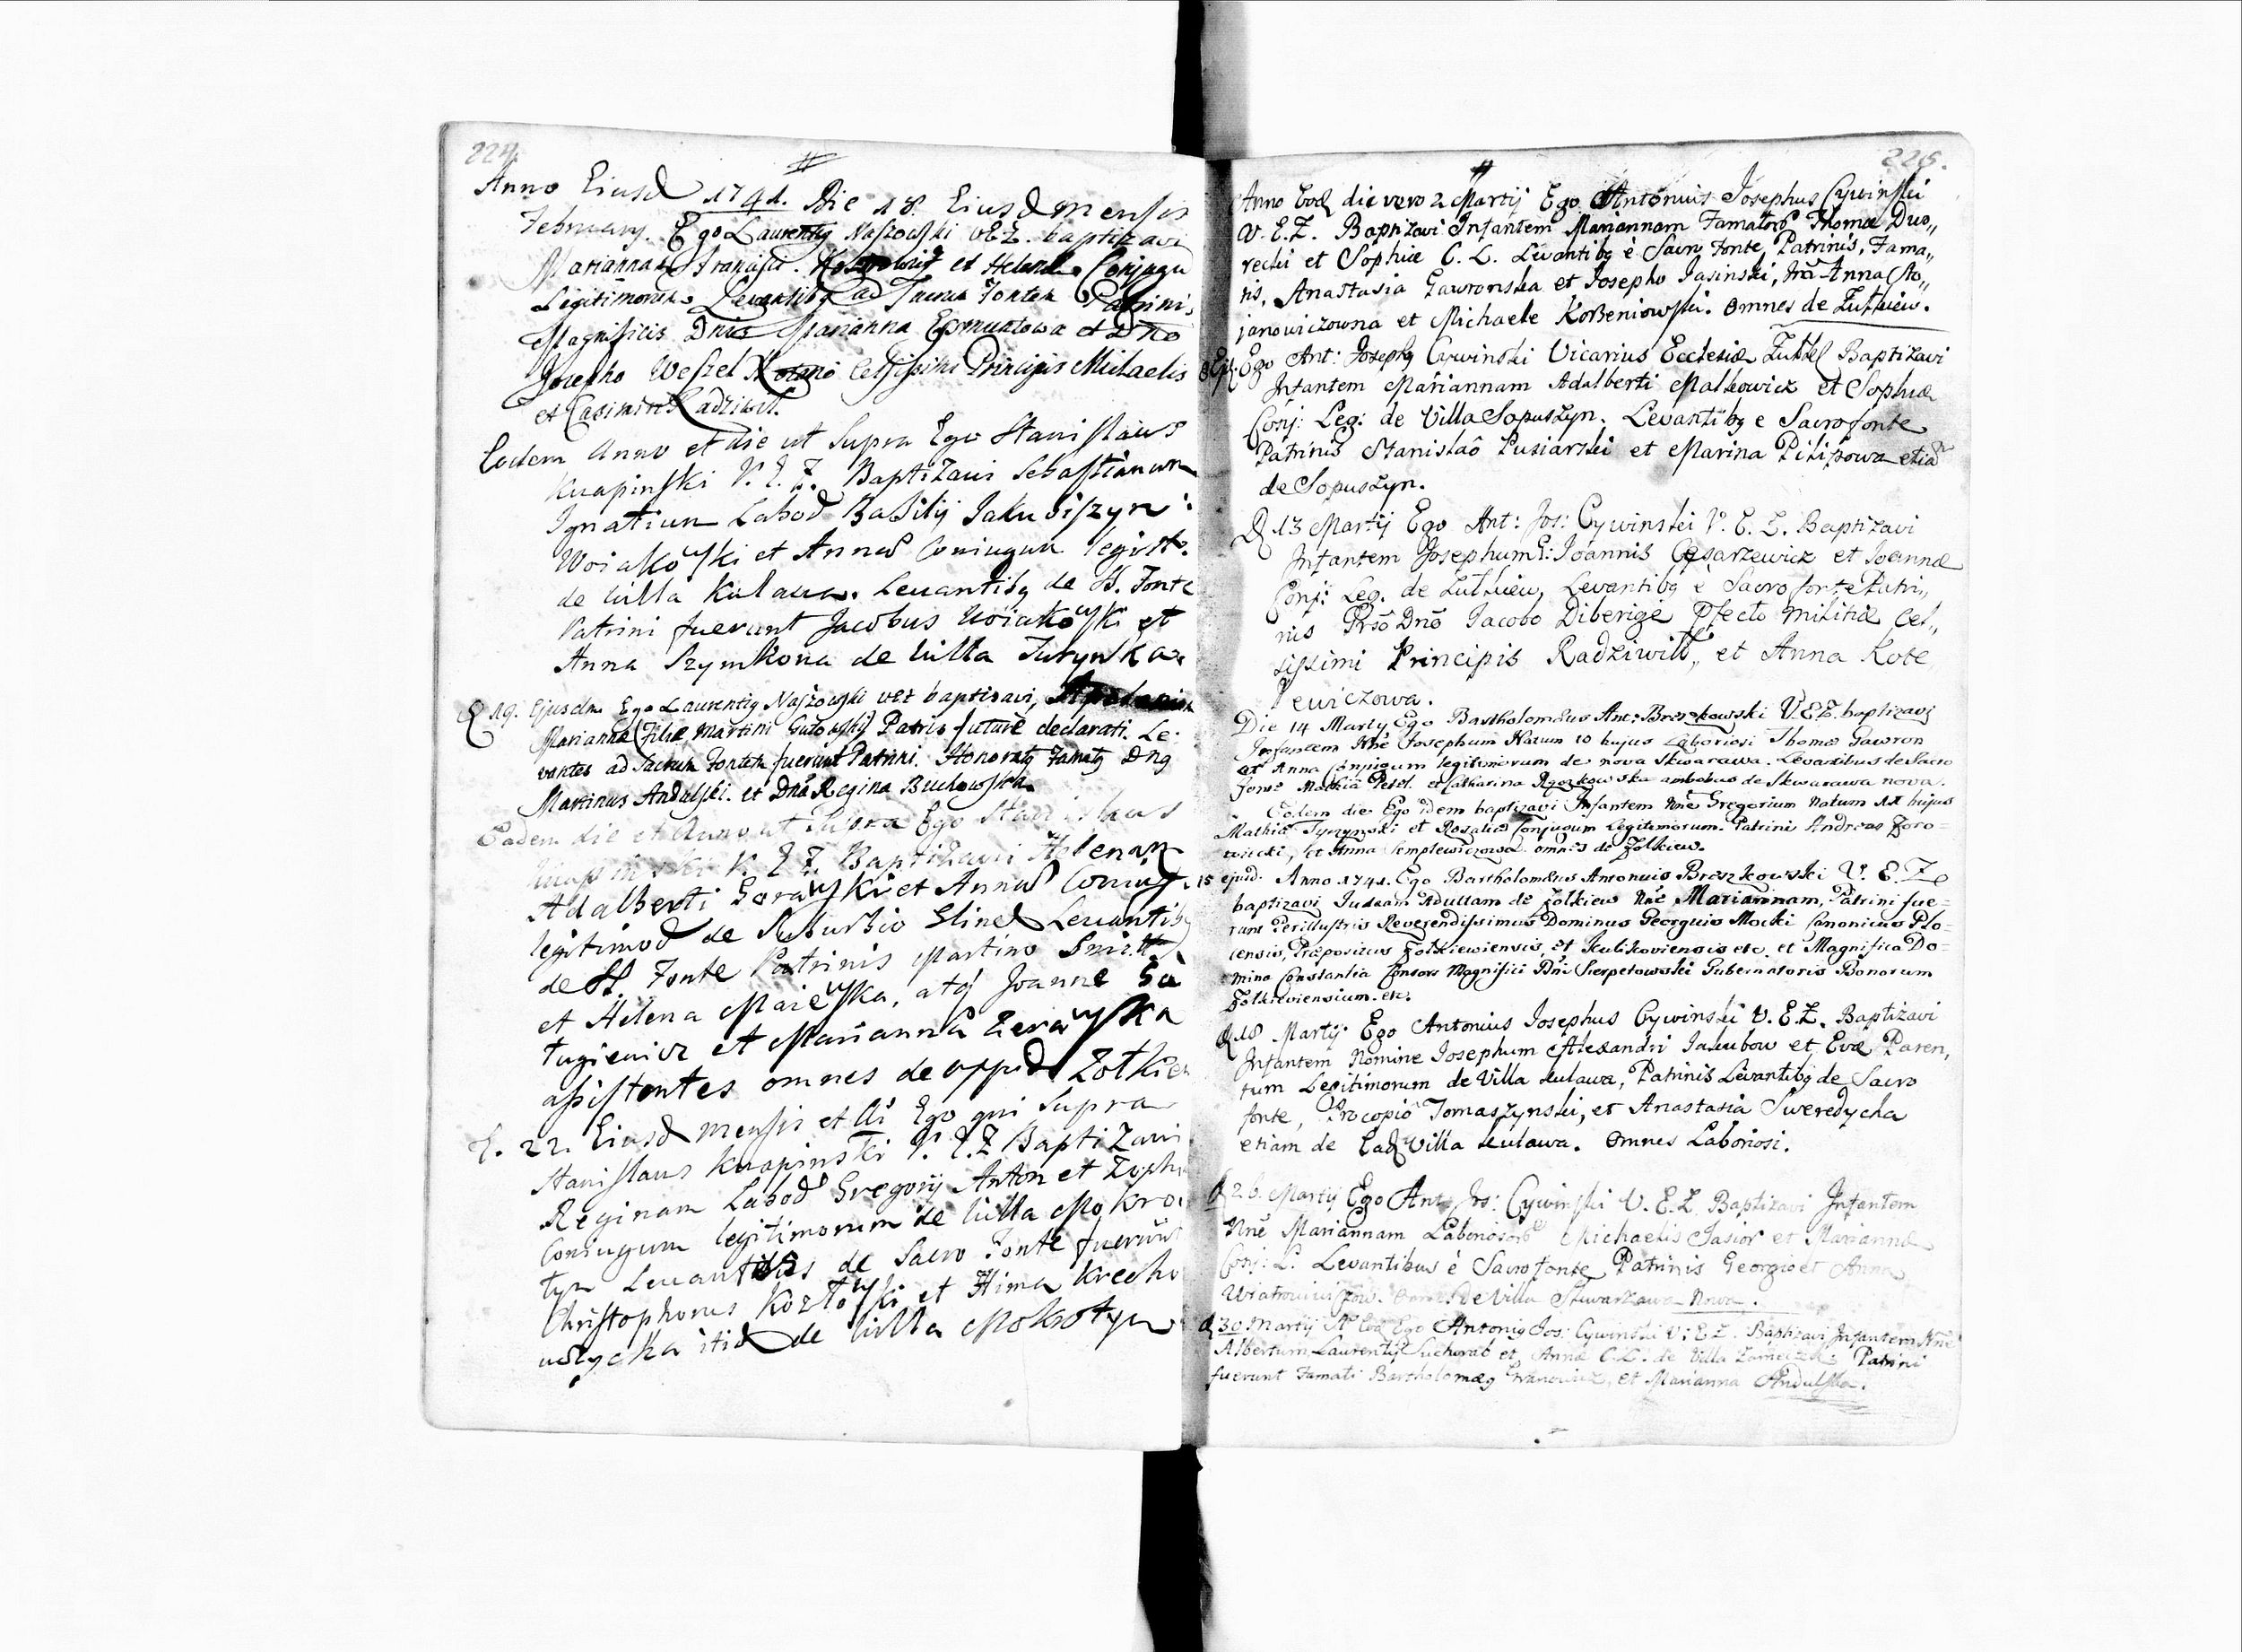 224.
#
Anno Eiusd 1741. Die 18 Eiusd Mensis
February. Ego Laurenty Naszowski VEZ. baptizavi
Mariannam Francisci. et Helenae Conjugu
Legitimorum. Levantibq ad Sacrum Fontem Patrinis
Magnificis Dnis Marianna et Dno
Josepho Weszel Celsissimi Principis Michaelis
et Casimiri Radziwil.
Eodem Anno et die ut Supra Ego Stanislaus
Knapinski V. E. Z. Baptizavi Sebastianum
Ignatium Labod Basilij Jakubiszyn
Woiakowski et Anna Coniugum legist.
de villa Kulawa. Levantibq de S. Fonte
Patrini fuerunt Jacobus Woiakowski et
Anna Szymkowa de villa Turynska.
D 19. Ejusdm Ego Laurentiq Naszowski VEZ baptizavi,
Marianna Filia Martini Gutowskij Patris future declarati. Le:
vantes ad Sacrum Fontem fuerunt Patrini. Honoratq Famatq Dnq
Martinus Andulski. et Dna Regina Buchowska.
Eadem die et Anno ut Supra Ego Stanislaus
Knapinski V. E. Z. Baptizavi Helenam
Adalberti Gorawski et Anna Coniug.
legitimod de Suburbio Gline Levantibq
de S Fonte Patrinis Martino
et Helena Maiewska, atq Joanne Ga
tugiewicz et Marianna Zerawska
assistentes omnes de oppido Zolkiew
D. 22. Eiusd Mensis et Ai Ego qui Supra
Stanislaus Knapinski V. E. Z Baptizavi
Reginam Labod Gregorij Anton et Zophi
Coniugum legitimorum de villa Mokro
tyn Levantibus de Sacro Fonte fuerunt
Christophorus Kozlowski et Hima Krecho
wolycka itid de villa Mokrotyn
225.
#
Anno Eod die vero 2 Martij Ego Antonius Josephus Cywinski
V. E. Z. Baptizavi Infantem Mariannam Famatorum Thomae Dwo,,
recki et Sophiae C. L. Levantibq è Sacro Fonte Patrinis, Fama,,
tis, Anastasia Gawronska et Josepho Jasinski, Anna Sto,,
janowiczowna et Michaele Korzeniowski. omnes de Zulkiew.
Ego Ant: Josephq Cywinski Vicarius Ecclesiae Zulkl Baptizavi
Infantem Mariannam Adalberti Malkowicz et Sophiae
Conj: Leg: de Villa Sopuszyn. Levantibq e Sacro fonte
Patrinis Stanislaô Pusiarski et Marina Pilipowa etia
de Sopuszyn.
D 13 Martij Ego Ant: Jos: Cywinski V. E. Z. Baptizavi
Infantem Josephum Joannis Cesarzewicz et Joannae
Conj: Leg. de Zulkiew, Levantibq e Sacro fonte Patri,,
nis Prso Dno Jacobo Diberige Pfecto Militiae Cel,,
sissimi Principis Radziwill, et Anna Kote
lewiczowa.
Die 14 Marty Ego Bartholomaeus Ant: Breszkowski V.E.Z. baptizavi
Infantem Nne Josephum Natum 10 hujus Laboriosi Thomae Gawron
et Anna Conjugum legitimorum de nova Skwarawa. Levantibus de Sacro
fonte Mathia Petel. et Catharina Rzeszkowska ambobus de Skwarawa nova.
Eodem die Ego idem baptizavi Infantem Nne Gregorium Natum 12 hujus
Mathiae Tyszynski et Rosaliae Conjugum Legitimorum. Patrini Andreas Zoro=
wiecki, et Anna Semplewiczowa omnes de Zolkiew.
15 ejusd. Anno 1741. Ego Bartholomaeus Antonius Breszkowski V. E. Z.
baptizavi Judaam Adultam de Zolkiew Nne Mariannam, Patrini fue=
runt Perillustris Reverendissimus Dominus Georgius Mocki Canonicus Plo=
censis, Praepositus Zolkiewiensis, et Kulikoviensis etc. et Magnifica Do=
mina Constantia Consors Magnifici Dni Sierpetowski Gubernatoris Bonorum
Zolkieviensium. etc.
D 18 Martij Ego Antonius Josephus Cywinski V. E. Z. Baptizavi
Infantem Nomine Josephum Alexandri Jakubow et Evae Paren,
tum Legitimorum de Villa Kulawa, Patrinis Levantibq de Sacro
fonte, Procopiô Tomaszynski, et Anastasia Sweredycha
etiam de Eadq Villa Kulawa. Omnes Laboriosi.
D 26. Martij Ego Ant: Jos: Cywinski V. E. Z. Baptizavi Infantem
Nne Mariannam Laboriosorum Michaelis Jasior et Mariannae
Conj: L. Levantibus è Sacro fonte Patrinis Georgio et Anna
de Villa Skwarzawa Nowa.
D 30 Martij Ego Antoniq Jos: Cywinski V: E Z. Baptizavi Infantem Nne
Albertum Laurentij Sucharab et Annae C. L. de Villa Zameczek. Patrini
fuerunt Famati Bartholomaeq Iwanowicz, et Marianna Andulska.